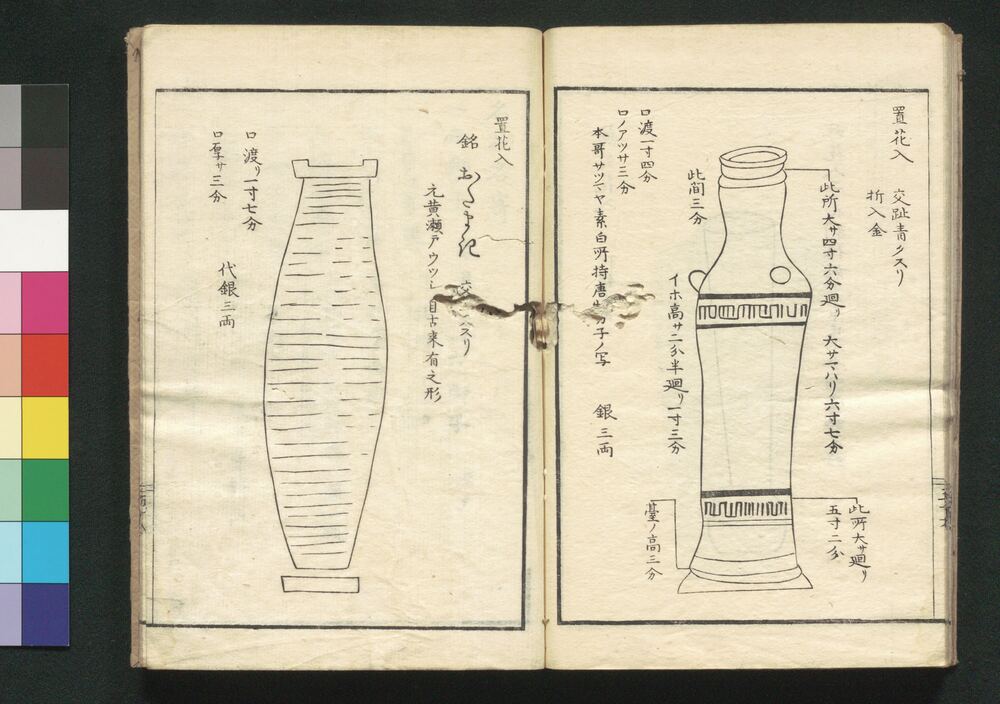 置花入
交趾青クスリ
折入金
此所大サ四寸六分廻リ
大サマハリ六寸七分
此所大サ廻リ
五寸二分
此間三分
イホ高サ二分半廻リ一寸三分
臺ノ高三分
口渡一寸四分
口ノアツサ三分
本哥サツマヤ素白所持唐物子ノ写
銀三両
置花入
銘
交 スリ
元黄瀬戸ウツシ自古来有之形
口渡リ一寸七分
口厚サ三分
代銀三両